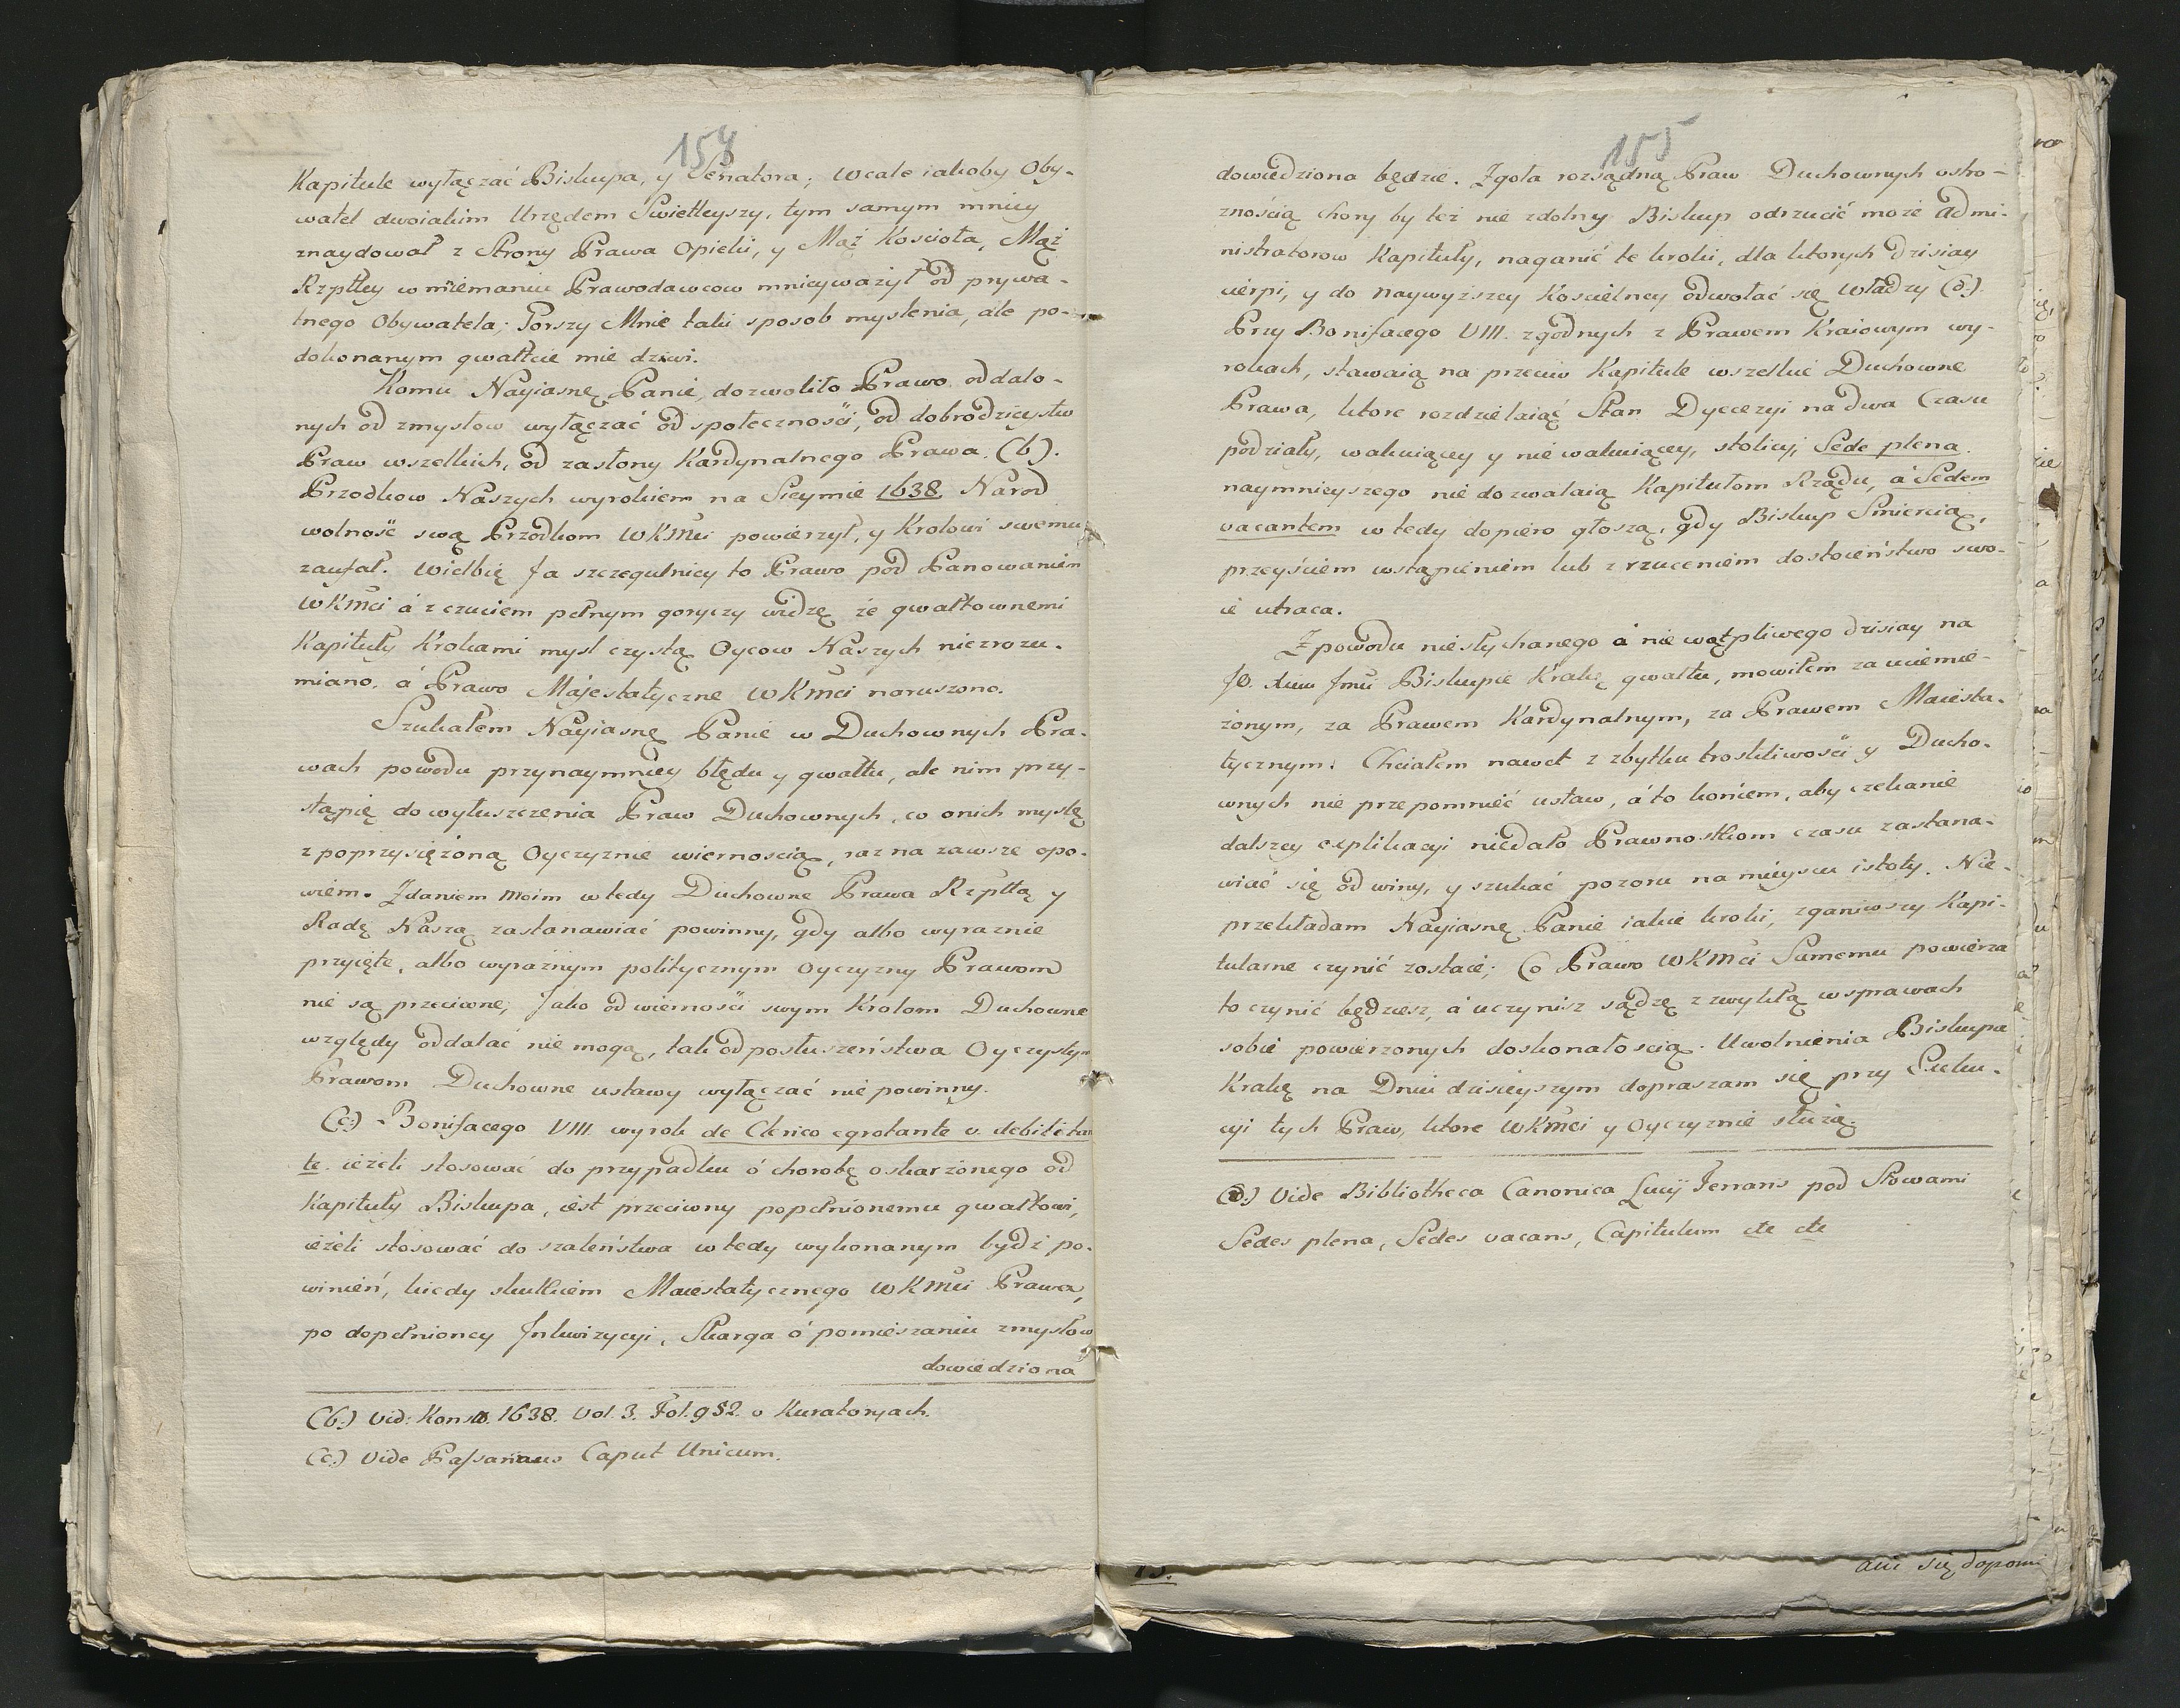 154
Kapitule wyłączać Biskupa, y Senatora; Wcale iakoby Oby-
watel dwoiakim Urzędem Swietleyszy, tym samym mniey
znaydował z Strony Prawa Opieki, y Mąż Kościoła, Mąż
Rzpltey w mniemaniu Prawodawcow mnieyważył od prywa-
tnego Obywatela; Gorszy Mnie taki sposob myslenia, ale po-
dokonanym gwałcie mie dziwi.
Komu Nayiasnę Panie, dozwoliło Prawo oddalo-
nych od zmysłow wyłączać od społecznosci, od dobrodzieystw
Praw wszelkich, od zasłony Kardynalnego Prawa. (b).
Przodkow Naszych wyrokiem na Sieymie 1638 Narod
wolność swą Przodkom WKMci powierzył, y Krolowi swemu
zaufał. Wielbię Ja szczegulniey to Prawo pod Panowaniem
WKMci á z czuciem pełnym goryczy widzę że gwałtownemi
Kapituły Krokami mysl czystą Oycow Naszych niezrozu-
miano, á Prawo Majestatyczne WKMci naruszono.
Szukałem Nayiasnę Panie w Duchownych Pra-
wach powodu przynaymniey błędu y gwałtu, ale nim przy-
stąpię do wyłuszczenia Praw Duchownych, co onich myslę
z poprzysiężoną Oyczyznie wiernoscią, raz na zawsze opo-
wiem. Zdaniem moim wtedy Duchowne Prawa Rzpltą y
Radę Naszą zastanawiać powinny, gdy albo wyraznie
przyięte, albo wyraźnym politycznym Oyczyzny Prawom
nie są przeciwne; Jako od wiernosci swym Krolom Duchowne
względy oddalać nie mogą, tak od posłuszeństwa Oyczystym
Prawom Duchowne ustawy wyłączać nie powinny.
(c:) Bonifacego VIII. wyrok de Clerico egrotante v. debilitan
te. ieżeli stosować do przypadku ó chorobę oskarżonego od
Kapituły Biskupa, iest przeciwny popełnionemu gwałtowi,
ieżeli stosować do szaleństwa wtedy wykonanym bydź po-
winień, kiedy skutkiem Maiestatycznego WKMci Prawa,
po dopełnioney Inkwizycyi, Skarga ó pomieszaniu zmysłow
dowiedziona
(b:) Vid: Konst. 1638. Vol. 3. Fol. 952. o Kuratoryach.
(c:) Vide Caput Unicum.
155
dowiedziona będzie. Zgoła rozsądną Praw Duchownych ostro-
żnością chory by też nie zdolny Biskup odrzucić może Admi-
nistratorow Kapituły, naganić te kroki, dla ktorych dzisiay
cierpi, y do naywyższey Koscielney odwołać się Władzy (d:).
Przy Bonifacego VIII. zgodnych z Prawem Kraiowym wy-
rokach, stawaią na przeciw Kapitule wszelkie Duchowne
Prawa, ktore rozdzielaiąc Stan Dyecezyi na dwa Czasu
podziały, wakuiącey y nie wakuiącey, stolicy, Sede plena
naymnieyszego nie dozwalaią Kapitułom Rządu, á Sedem
vacantem wtedy dopiero głoszą, gdy Biskup Smiercią,
przeyściem ustąpieniem lub z rzuceniem dostoieństwo swo-
ie utraca.
Z powodu niesłychanego á nie wątpliwego dzisiay na
JO. Xciu Jmci Biskupie Krakę gwałtu, mowiłem za uciemię-
żonym, za Prawem Kardynalnym, za Prawem Maiesta-
tycznym. Chciałem nawet z zbytku troskliwości y Ducho-
wnych nie przepomnieć ustaw, á to końcem, aby czekanie
dalszey explikacyi niedało Prawnostkom czasu zastana-
wiać się od winy, y szukać pozoru na mieyscu istoty. Nie-
przekładam Nayiasnę Panie iakie kroki, zganiwszy Kapi-
tularne czynić zostaie; Co Prawo WKMci Samemu powierza
to czynić będziesz, á uczynisz sądzę z zwykłą w sprawach
sobie powierzonych doskonałoscią. Uwolnienia Biskupa
Krakę na Dniu dzisieyszym dopraszam się przy Exeku-
cyi tych Praw, ktore WKMci y Oyczyznie służą.
(d:) Vide Bibliotheca Canonica Lucij Ferraris pod Słowami
Sedes plena, Sedes vacans, Capitulum etc etc
ani się dopomi